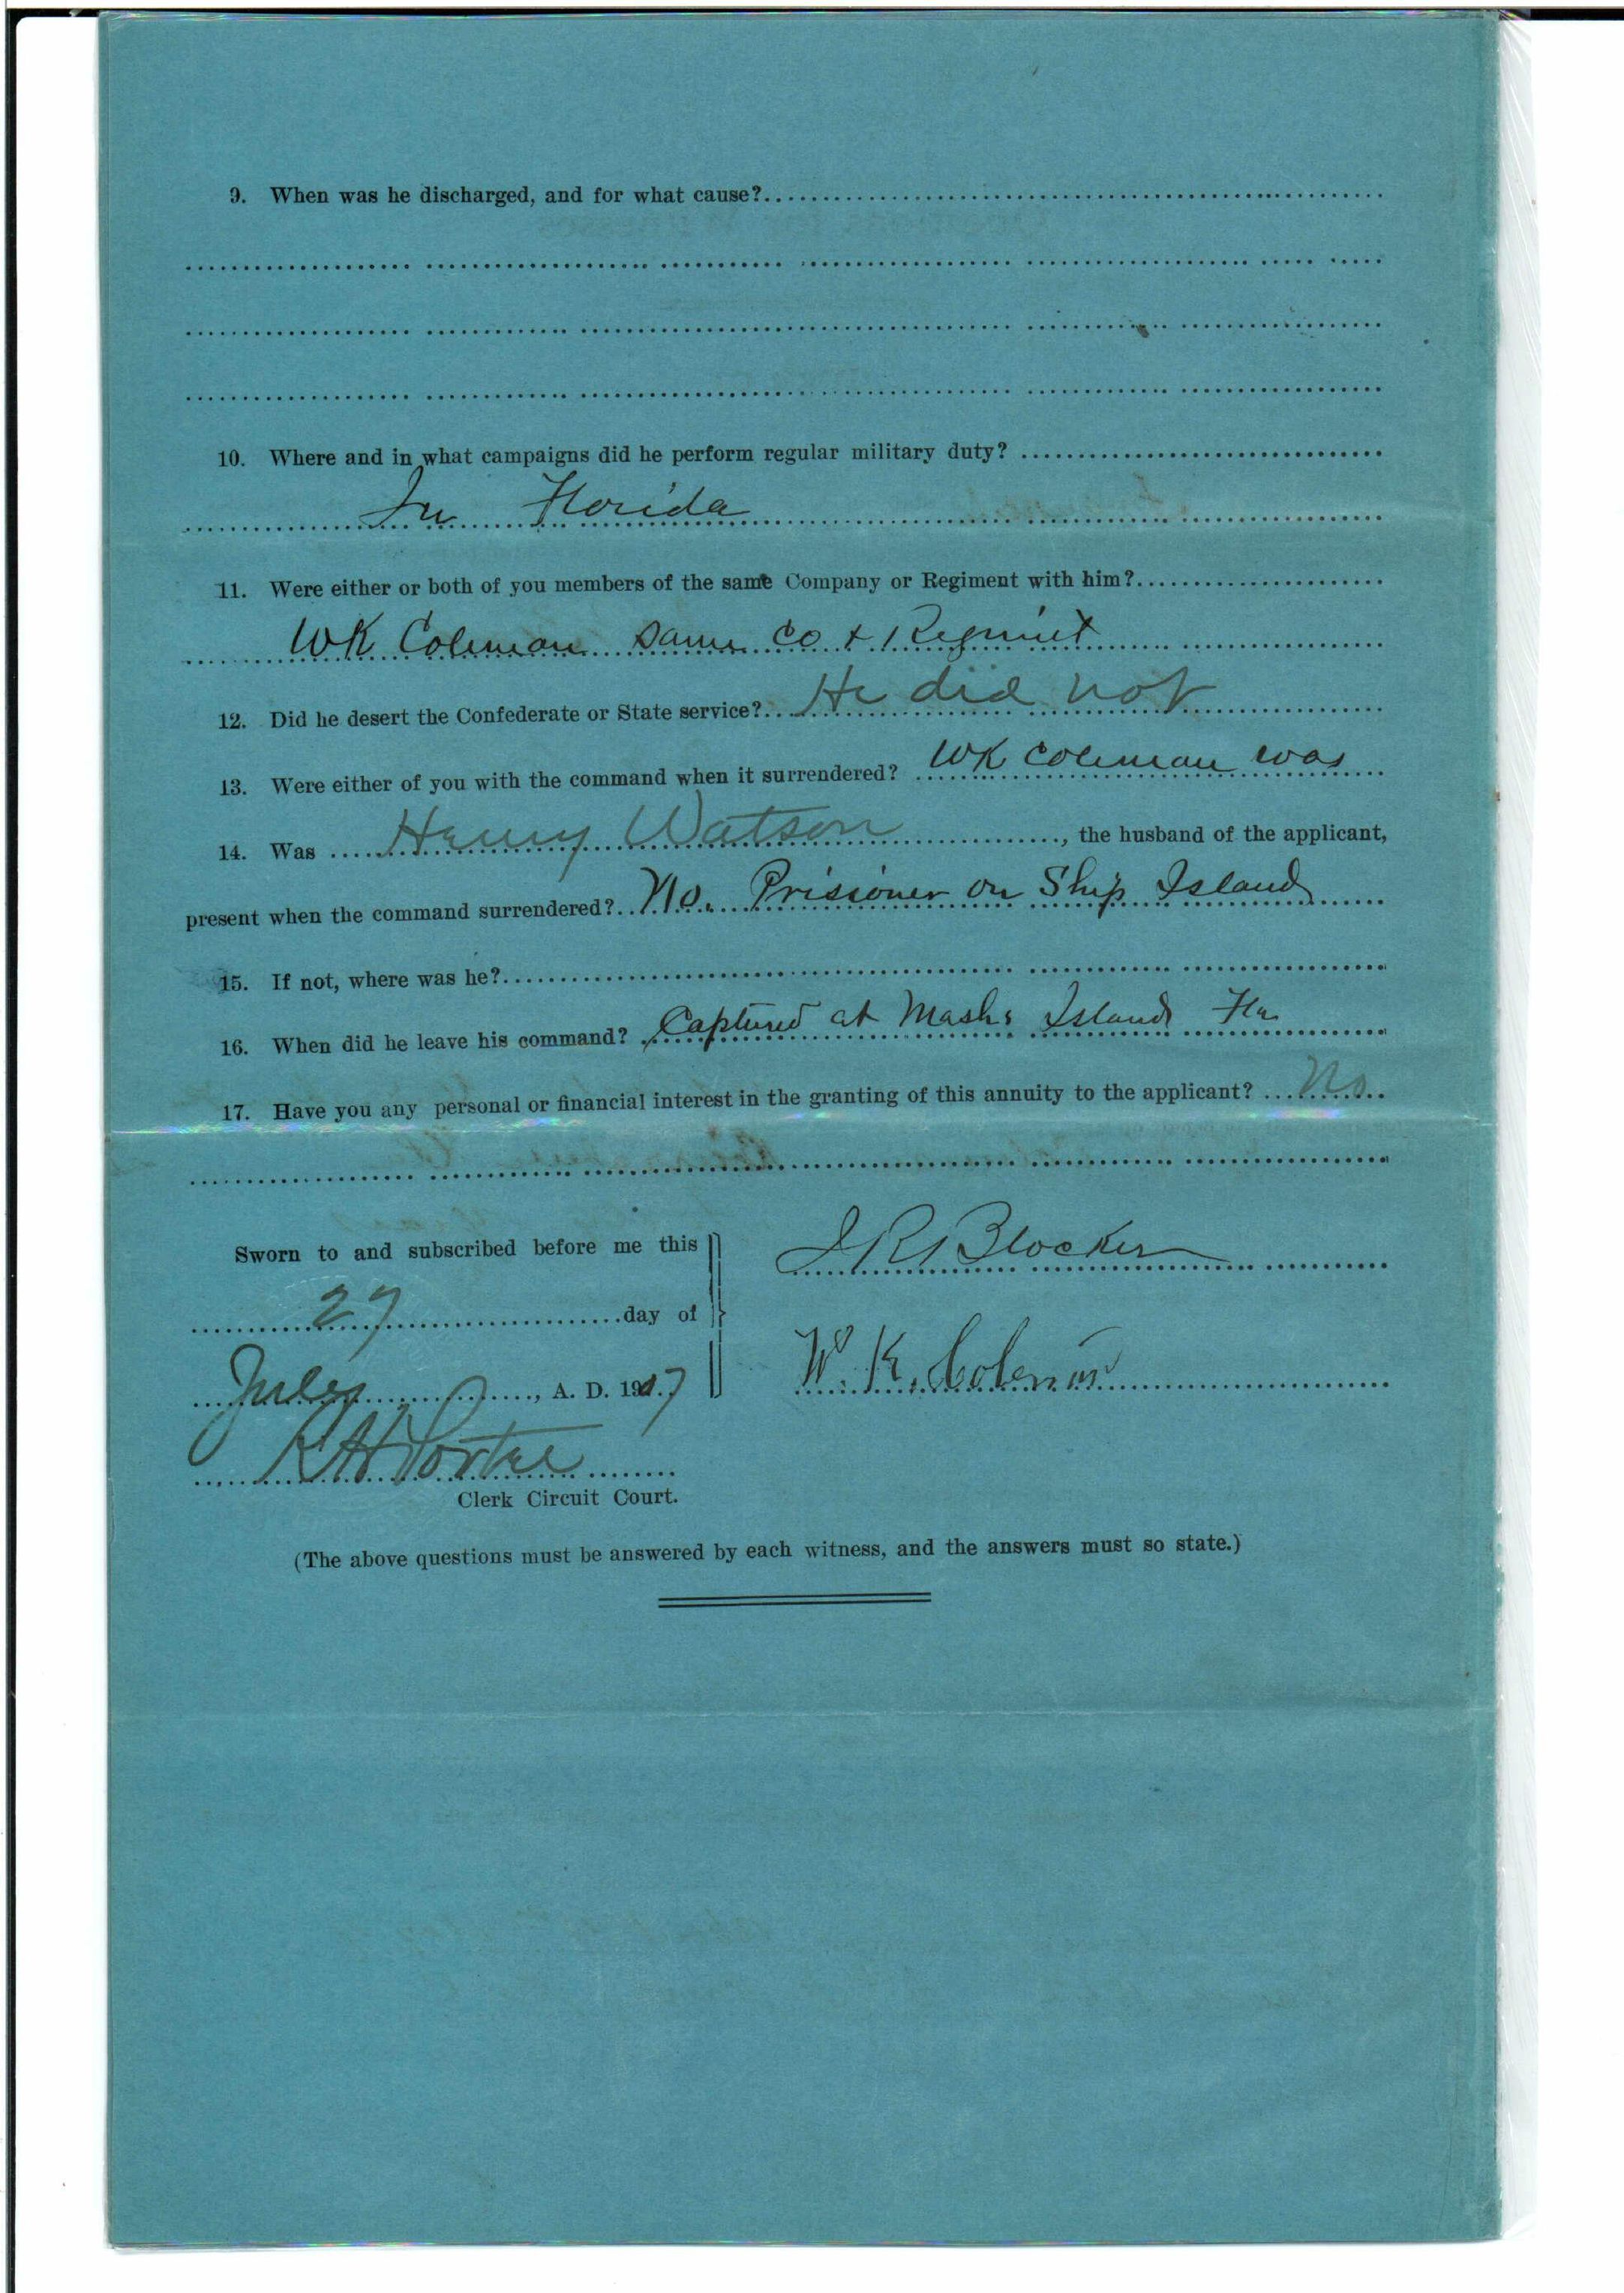 9. When was he discharged, and for what cause?
10. Where and in what campaigns did he perform regular military duty?
In Florida
11. Were either or both of you members of the same Company or Regiment with him?
WK Coleman Same Co & Regmint
12. Did he desert the Confederate or State service? He did not
13. Were either of you with the command when it surrendered? WK Coleman was
14. Was Henry Watson, the husband of the applicant,
present when the command surrendered? No. Prissoner on Ship Island
15. If not, where was he?
16. When did he leave his command? Captured at Mashs Island Fla
17. Have you any personal or financial interest in the granting of this annuity to the applicant? No
Sworn to and subscribed before me this
J R Blocker
27 day of
July, A. D. 1907
W. K. Coleman
R A Porter
Clerk Circuit Court.
(The above questions must be answered by each witness, and the answers must so state.)